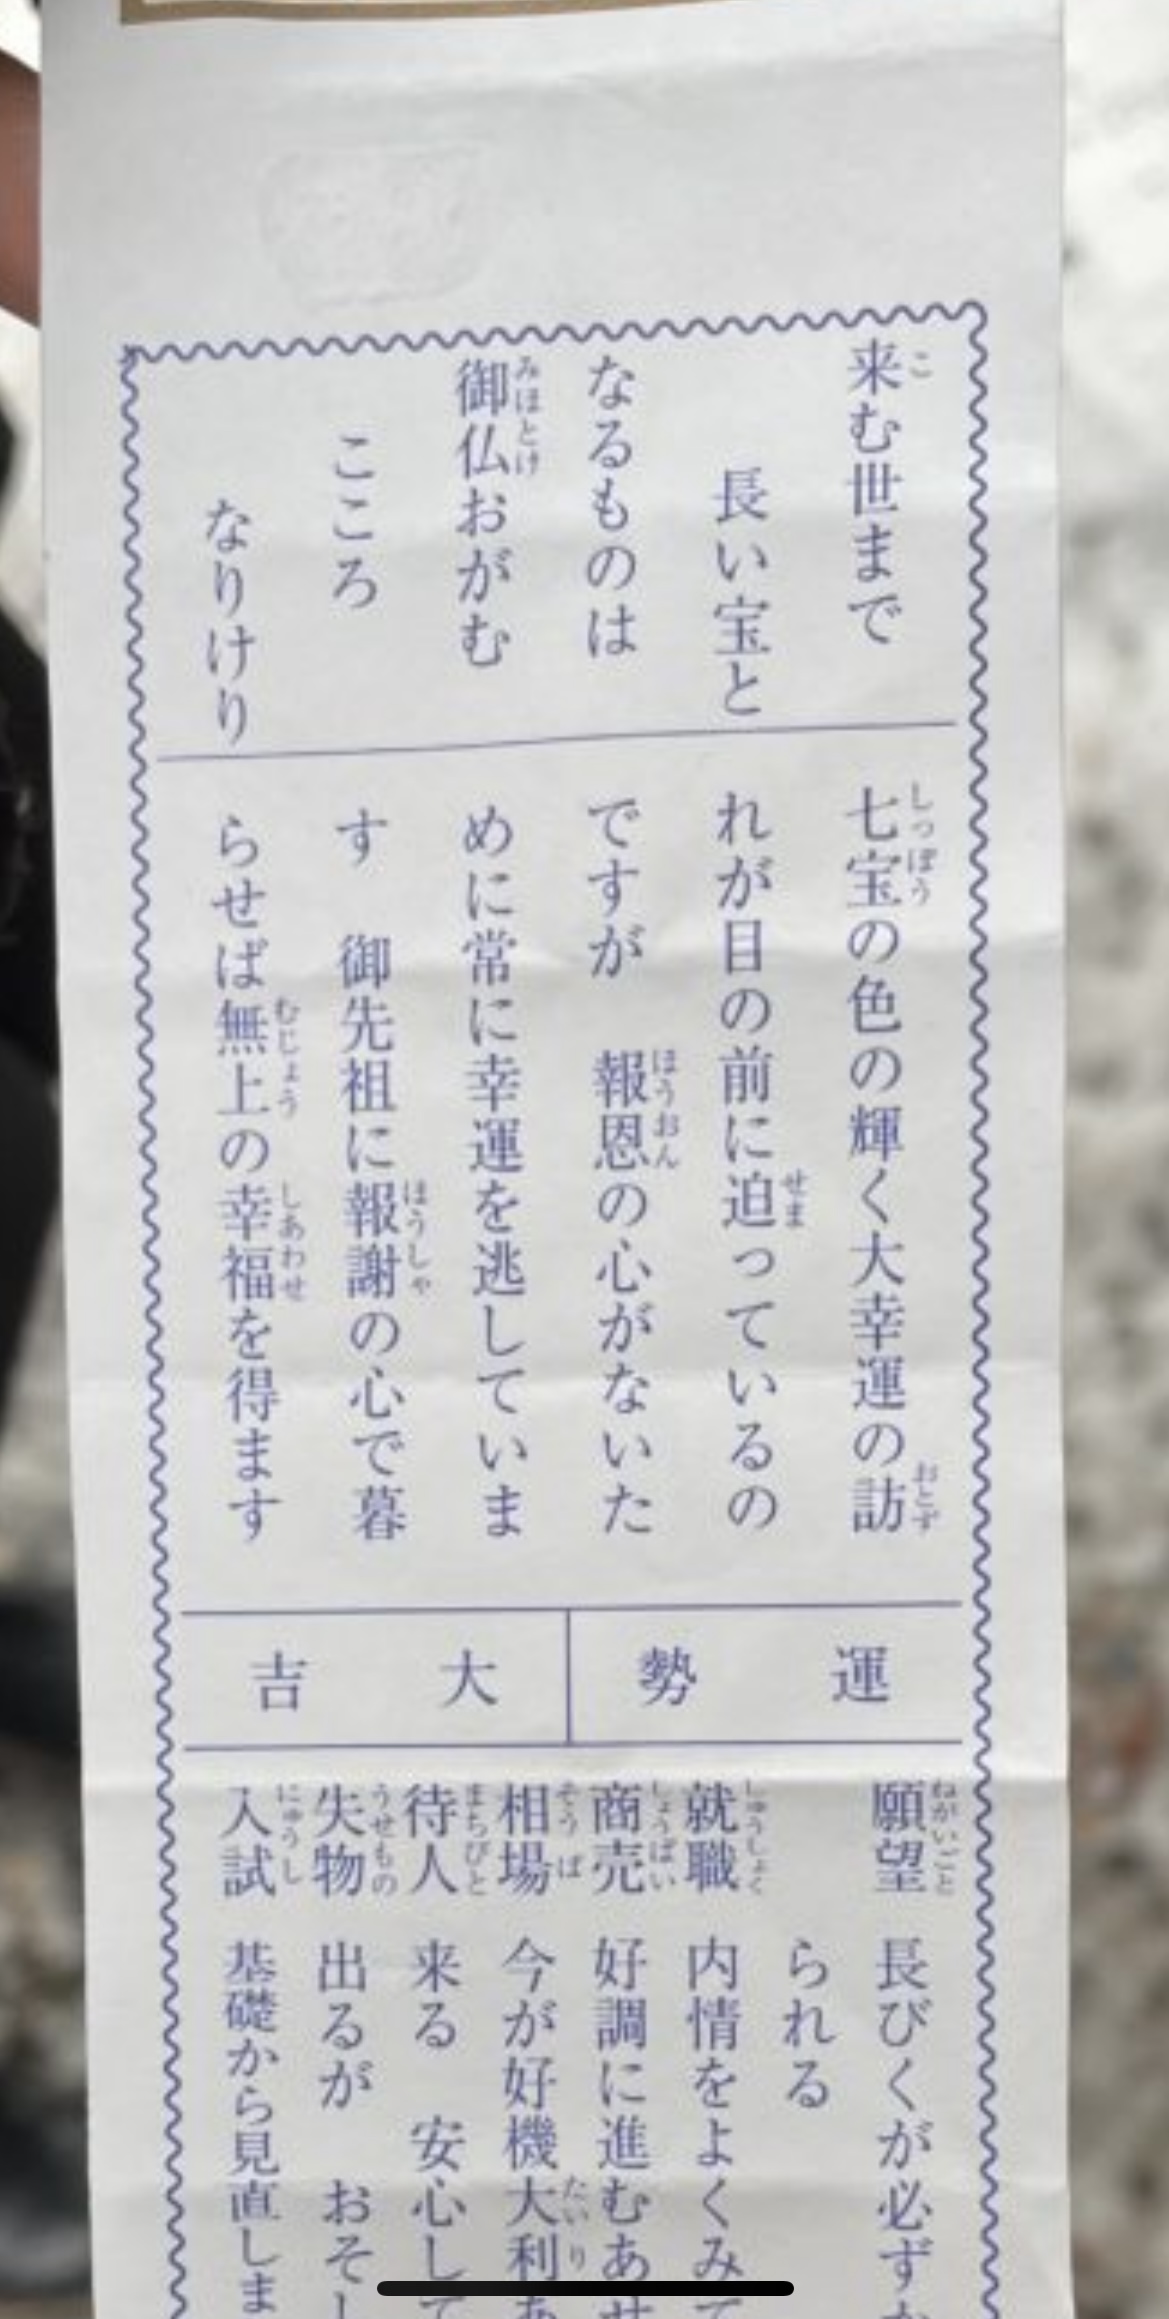 来む世まで
長い宝と
なるものは
御仏おがむ
こころ
なりけり
七宝の色の輝く大幸運の訪
れが目の前に迫っているの
ですが　報恩の心がないた
めに常に幸運を逃していま
す　御先祖に報謝の心で暮
らせば無上の幸福を得ます
運勢
大吉
願望　長びくが必ず
られる
就職　内情をよくみて
商売　好調に進むあせ
相場　今が好機大利あ
待人　来る　安心して
失物　出るが　おそし
入試　基礎から見直しま